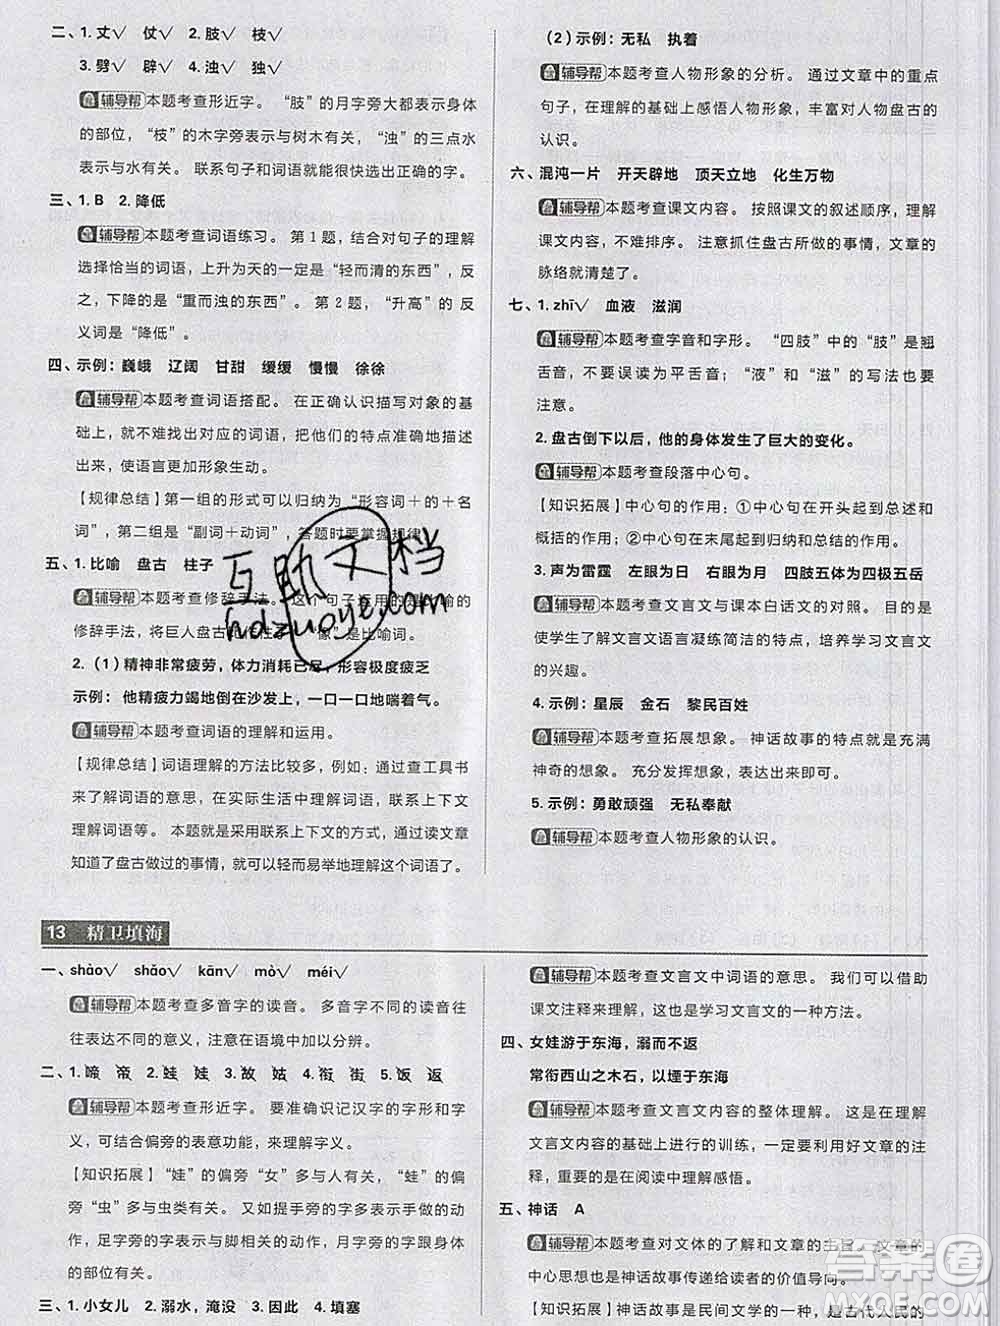 二、1.丈√ 仗√ 2.肢√ 枝√
3.劈√ 辟√ 4.浊√ 独√
辅导帮 本题考查形近字。“肢”的月字旁大都表示身体
的部位，“枝”的木字旁表示与树木有关，“浊”的三点水
表示与水有关。联系句子和词语就能快速选出正确的字。
三、1.B 2.降低
辅导帮 本题考查词语练习。第1题，结合对句子的理解
选择恰当的词语，上升为天的一定是“轻而清的东西”，反
之，下降的是“重而浊的东西”。第2题，“升高”的反
义词是“降低”。
四、示例：巍峨 辽阔 甘甜 缓缓 慢慢 徐徐
辅导帮 本题考查词语搭配。在正确认识描写对象的基
础上，就不难找出对应的词语，把他们的特点准确地描述
出来，使语言更加形象生动。
【规律总结】第一组的形式可以归纳为“形容词＋的＋名
词”，第二组是“副词＋动词”，答题时要掌握规律
五、1.比喻 盘古 柱子
辅导帮 本题考查修辞手法。这个句子运用的是比喻的
修辞手法，将巨人盘古比作柱子，“像”是比喻词。
2.（1）精神非常疲劳，体力消耗已尽，形容极度疲乏
示例：他精疲力竭地倒在沙发上，一口一口地喘着气。
辅导帮 本题考查词语的理解和运用。
【规律总结】词语理解的方法比较多，例如：通过查工具书
来了解词语的意思，在实际生活中理解词语，联系上下文
理解词语等。本题就是采用联系上下文的方式，通过读文章
知道了盘古做过的事情，就可以轻而易举地理解这个词语了。
（2）示例：无私 执着
辅导帮 本题考查人物形象的分析。通过文章中的重点
句子，在理解的基础上感悟人物形象，丰富对人物盘古的
认识。
六、混沌一片 开天辟地 顶天立地 化生万物
辅导帮 本题考查课文内容。按照课文的叙述顺序，理解
课文内容，不难排序。注意抓住盘古所做的事情，文章的
脉络就清楚了。
七、1.zhī√ 血液 滋润
辅导帮 本题考查字音和字形。“四肢”中的“肢”是翘
舌音，不要误读为平舌音；“液”和“滋”的写法也要
注意。
2.盘古倒下以后，他的身体发生了巨大的变化。
辅导帮 本题考查段落中心句。
【知识拓展】中心句的作用：①中心句在开头起到总起和
概括的作用；②中心句在末尾起到归纳和总结的作用。
3.声为雷霆 左眼为日 右眼为月 四肢五体为四极五岳
辅导帮 本题考查文言文与课本白话文的对照。目的是
使学生了解文言文语言凝练简洁的特点，培养学习文言文
的兴趣。
4.示例：星辰 金石 黎民百姓
辅导帮 本题考查拓展想象。神话故事的特点就是充满
神奇的想象。充分发挥想象，表达出来即可。
5.示例：勇敢顽强 无私奉献
辅导帮 本题考查人物形象的认识。
互助文档
hdzuoye.com
13 精卫填海
一、shào√ shǎo√ kān√ mò√ méi√
辅导帮 本题考查多音字的读音。多音字不同的读音往
往代表着不同的意义，注意在语境中加以分辨。
二、1.啼 帝 2.蛙 娃 3.故 姑 4.衔 街 5.饭 返
辅导帮 本题考查形近字。要准确识记汉字的字形和字
义，可结合偏旁的表意功能，来理解字义。
【知识拓展】“娃”的偏旁“女”多与人有关，“蛙”的偏
旁“虫”多与动物有关。又如提手旁的字多表示手做的动
作，足字旁的字多表示与脚相关的动作，月字旁的字跟身体
的部位有关。
三、1.小女儿 2.溺水，淹没 3.因此 4.填塞
辅导帮 本题考查文言文中词语的意思。我们可以借助
课文注释来理解，这也是学习文言文的一种方法。
四、女娃游于东海，溺而不返
常衔西山之木石，以堙于东海
辅导帮 本题考查文言文内容的整体理解。这是在理解
文言文内容的基础上进行的训练，一定要利用好文章的注
释，重要的是在阅读中理解感悟。
五、神话 A
辅导帮 本题考查对文体的了解和文章的主旨。文章的
中心思想也是神话故事传递给读者的价值导向。
【知识拓展】神话故事是民间文学的一种，是古代人民的
答案圈
MXQE.COM